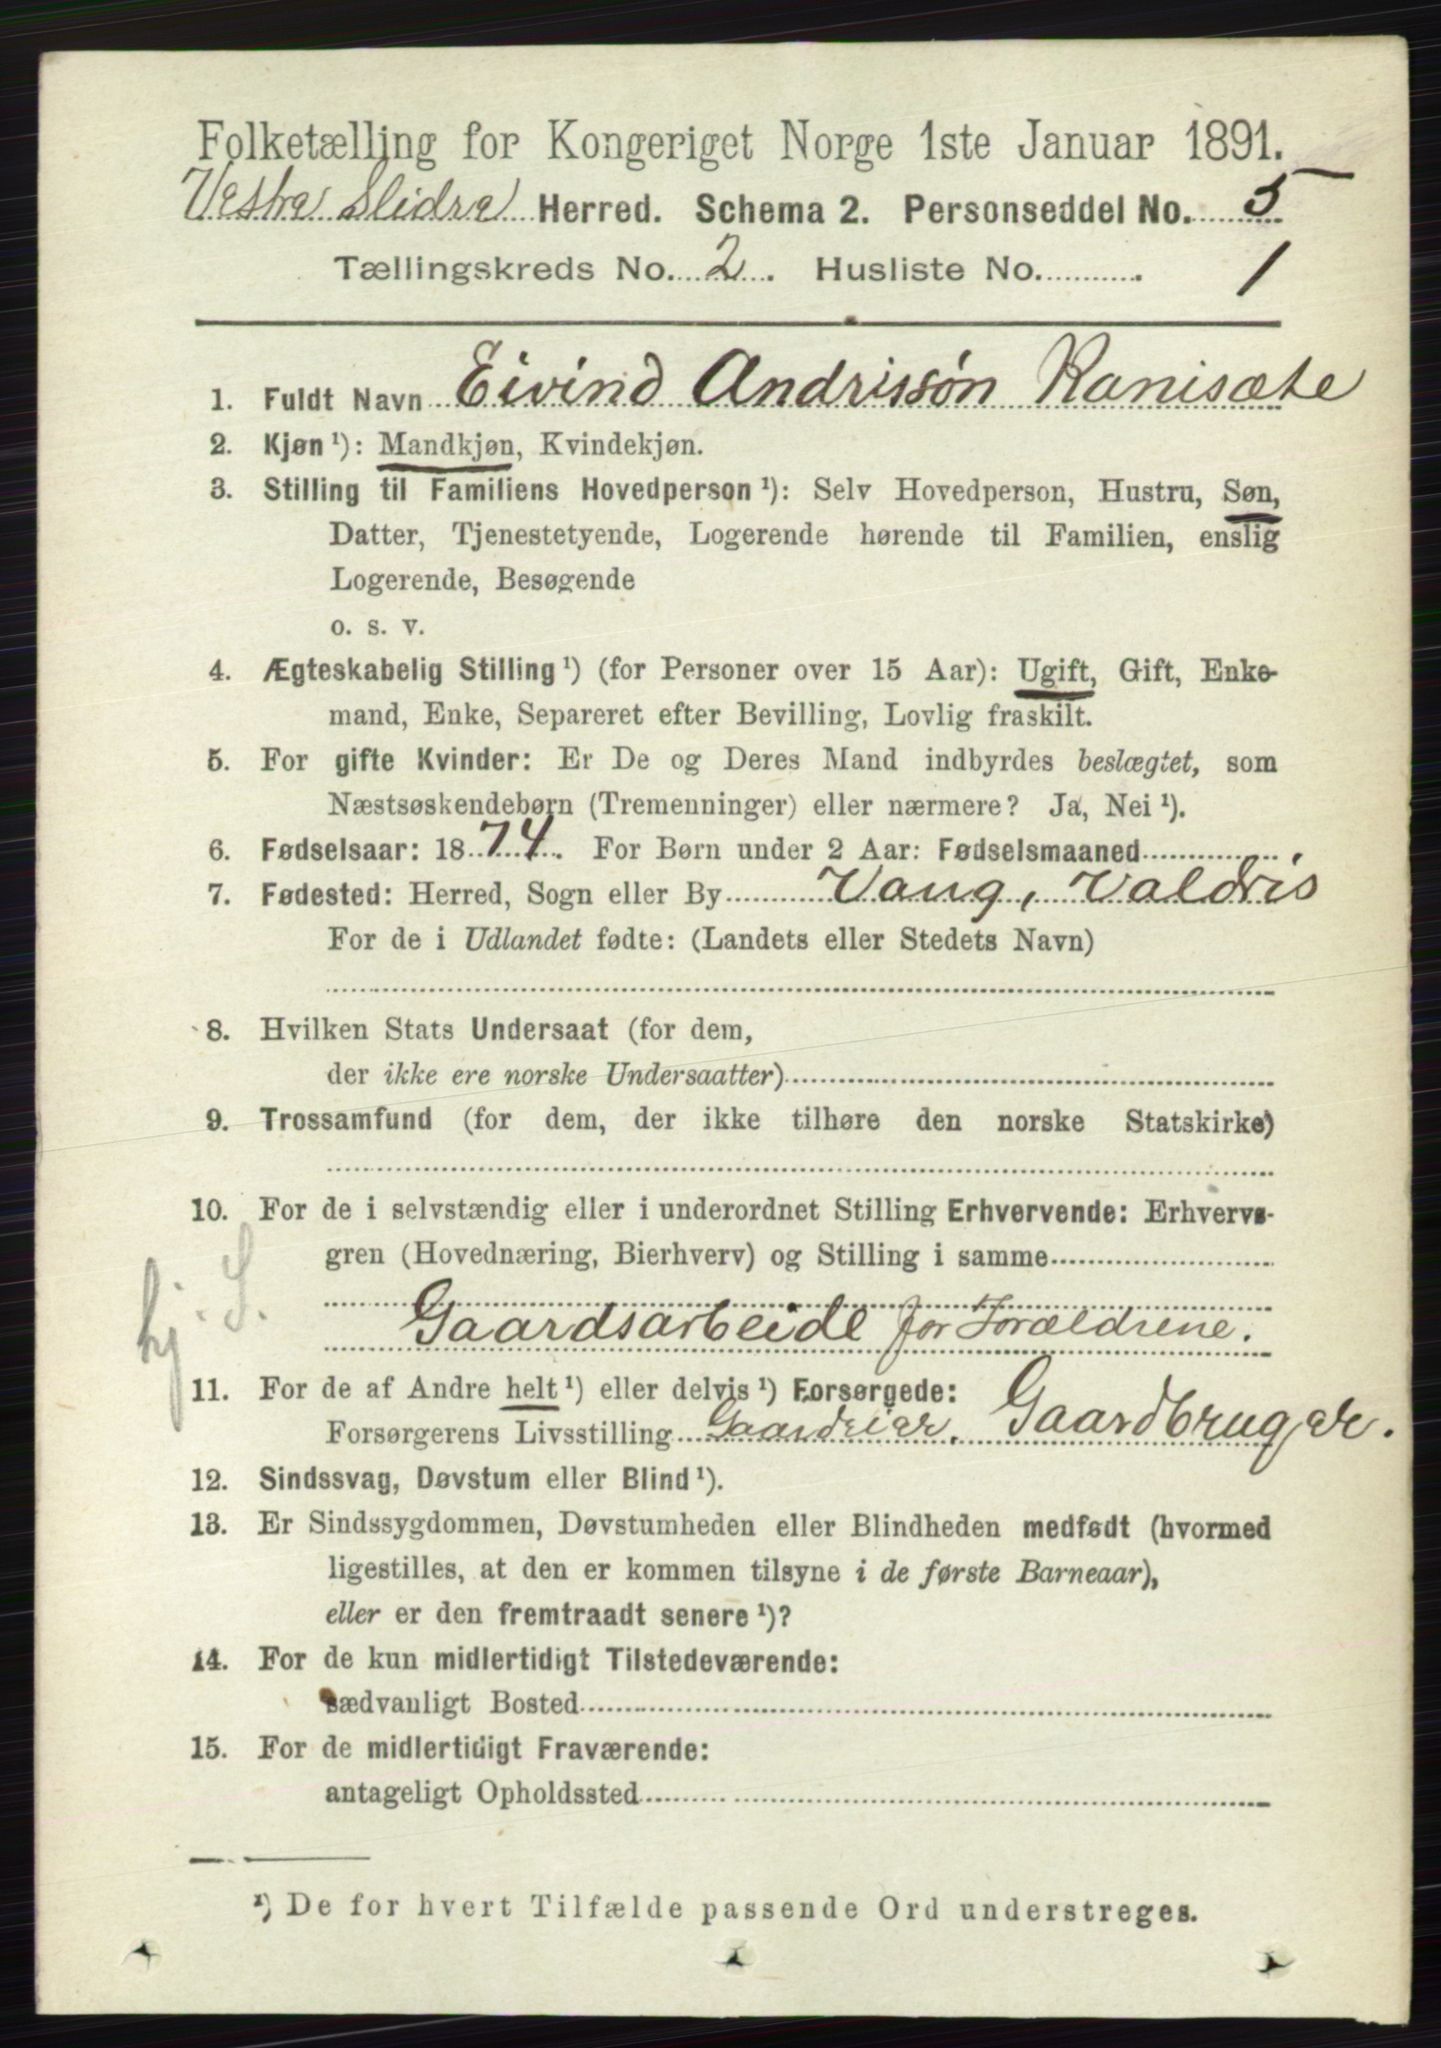 Folketælling for Kongeriget Norge 1ste Januar 1891.
Vestre Slidre Herred. Schema 2. Personseddel No. 5
Tællingskreds No. 2. Husliste No. 1
1. Fuldt Navn Eivind Andrissøn Ranisæte
2. Kjøn¹): Mandkjøn, Kvindekjøn.
3. Stilling til Familiens Hovedperson¹): Selv Hovedperson, Hustru, Søn,
Datter, Tjenestetyende, Logerende hørende til Familien, enslig
Logerende, Besøgende
o. s. v.
4. Ægteskabelig Stilling¹) (for Personer over 15 Aar): Ugift, Gift, Enke-
mand, Enke, Separeret efter Bevilling, Lovlig fraskilt.
5. For gifte Kvinder: Er De og Deres Mand indbyrdes beslægtet, som
Næstsøskendebørn (Tremenninger) eller nærmere? Ja, Nei¹).
6. Fødselsaar: 1874. For Børn under 2 Aar: Fødselsmaaned
7. Fødested: Herred, Sogn eller By Vang, Valdris
For de i Udlandet fødte: (Landets eller Stedets Navn)
8. Hvilken Stats Undersaat (for dem,
der ikke ere norske Undersaatter)
9. Trossamfund (for dem, der ikke tilhøre den norske Statskirke)
10. For de i selvstændig eller i underordnet Stilling Erhvervende: Erhvervs-
gren (Hovednæring, Bierhverv) og Stilling i samme
hj. S.
Gaardsarbeide for Forældrene.
11. For de af Andre helt¹) eller delvis¹) Forsørgede:
Forsørgerens Livsstilling Gaardeier. Gaardbruger.
12. Sindssvag, Døvstum eller Blind¹).
13. Er Sindssygdommen, Døvstumheden eller Blindheden medfødt (hvormed
ligestilles, at den er kommen tilsyne i de første Barneaar),
eller er den fremtraadt senere¹)?
14. For de kun midlertidigt Tilstedeværende:
sædvanligt Bosted
15. For de midlertidigt Fraværende:
antageligt Opholdssted
¹) De for hvert Tilfælde passende Ord understreges.